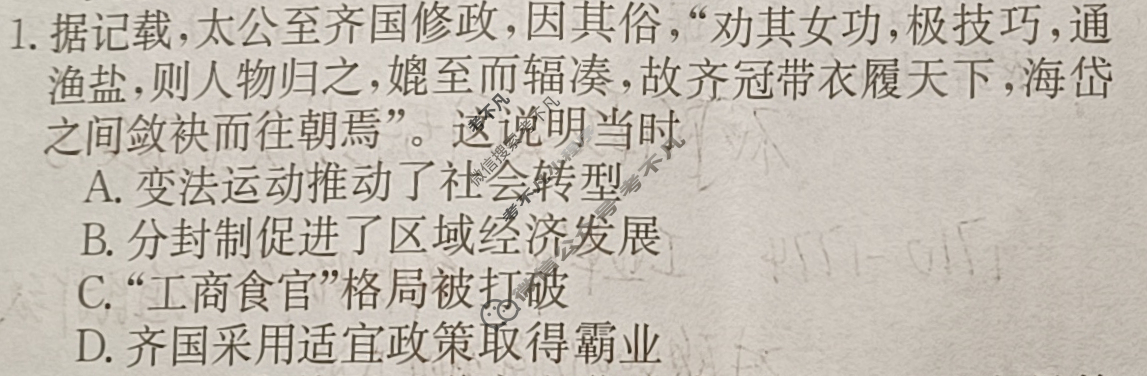 1. 据记载,太公至齐国修政,因其俗,“劝其女功,极技巧,通
渔盐,则人物归之,繦至而辐凑,故齐冠带衣履天下,海岱
之间敛袂而往朝焉”。这说明当时
A. 变法运动推动了社会转型
B. 分封制促进了区域经济发展
C. “工商食官”格局被打破
D. 齐国采用适宜政策取得霸业